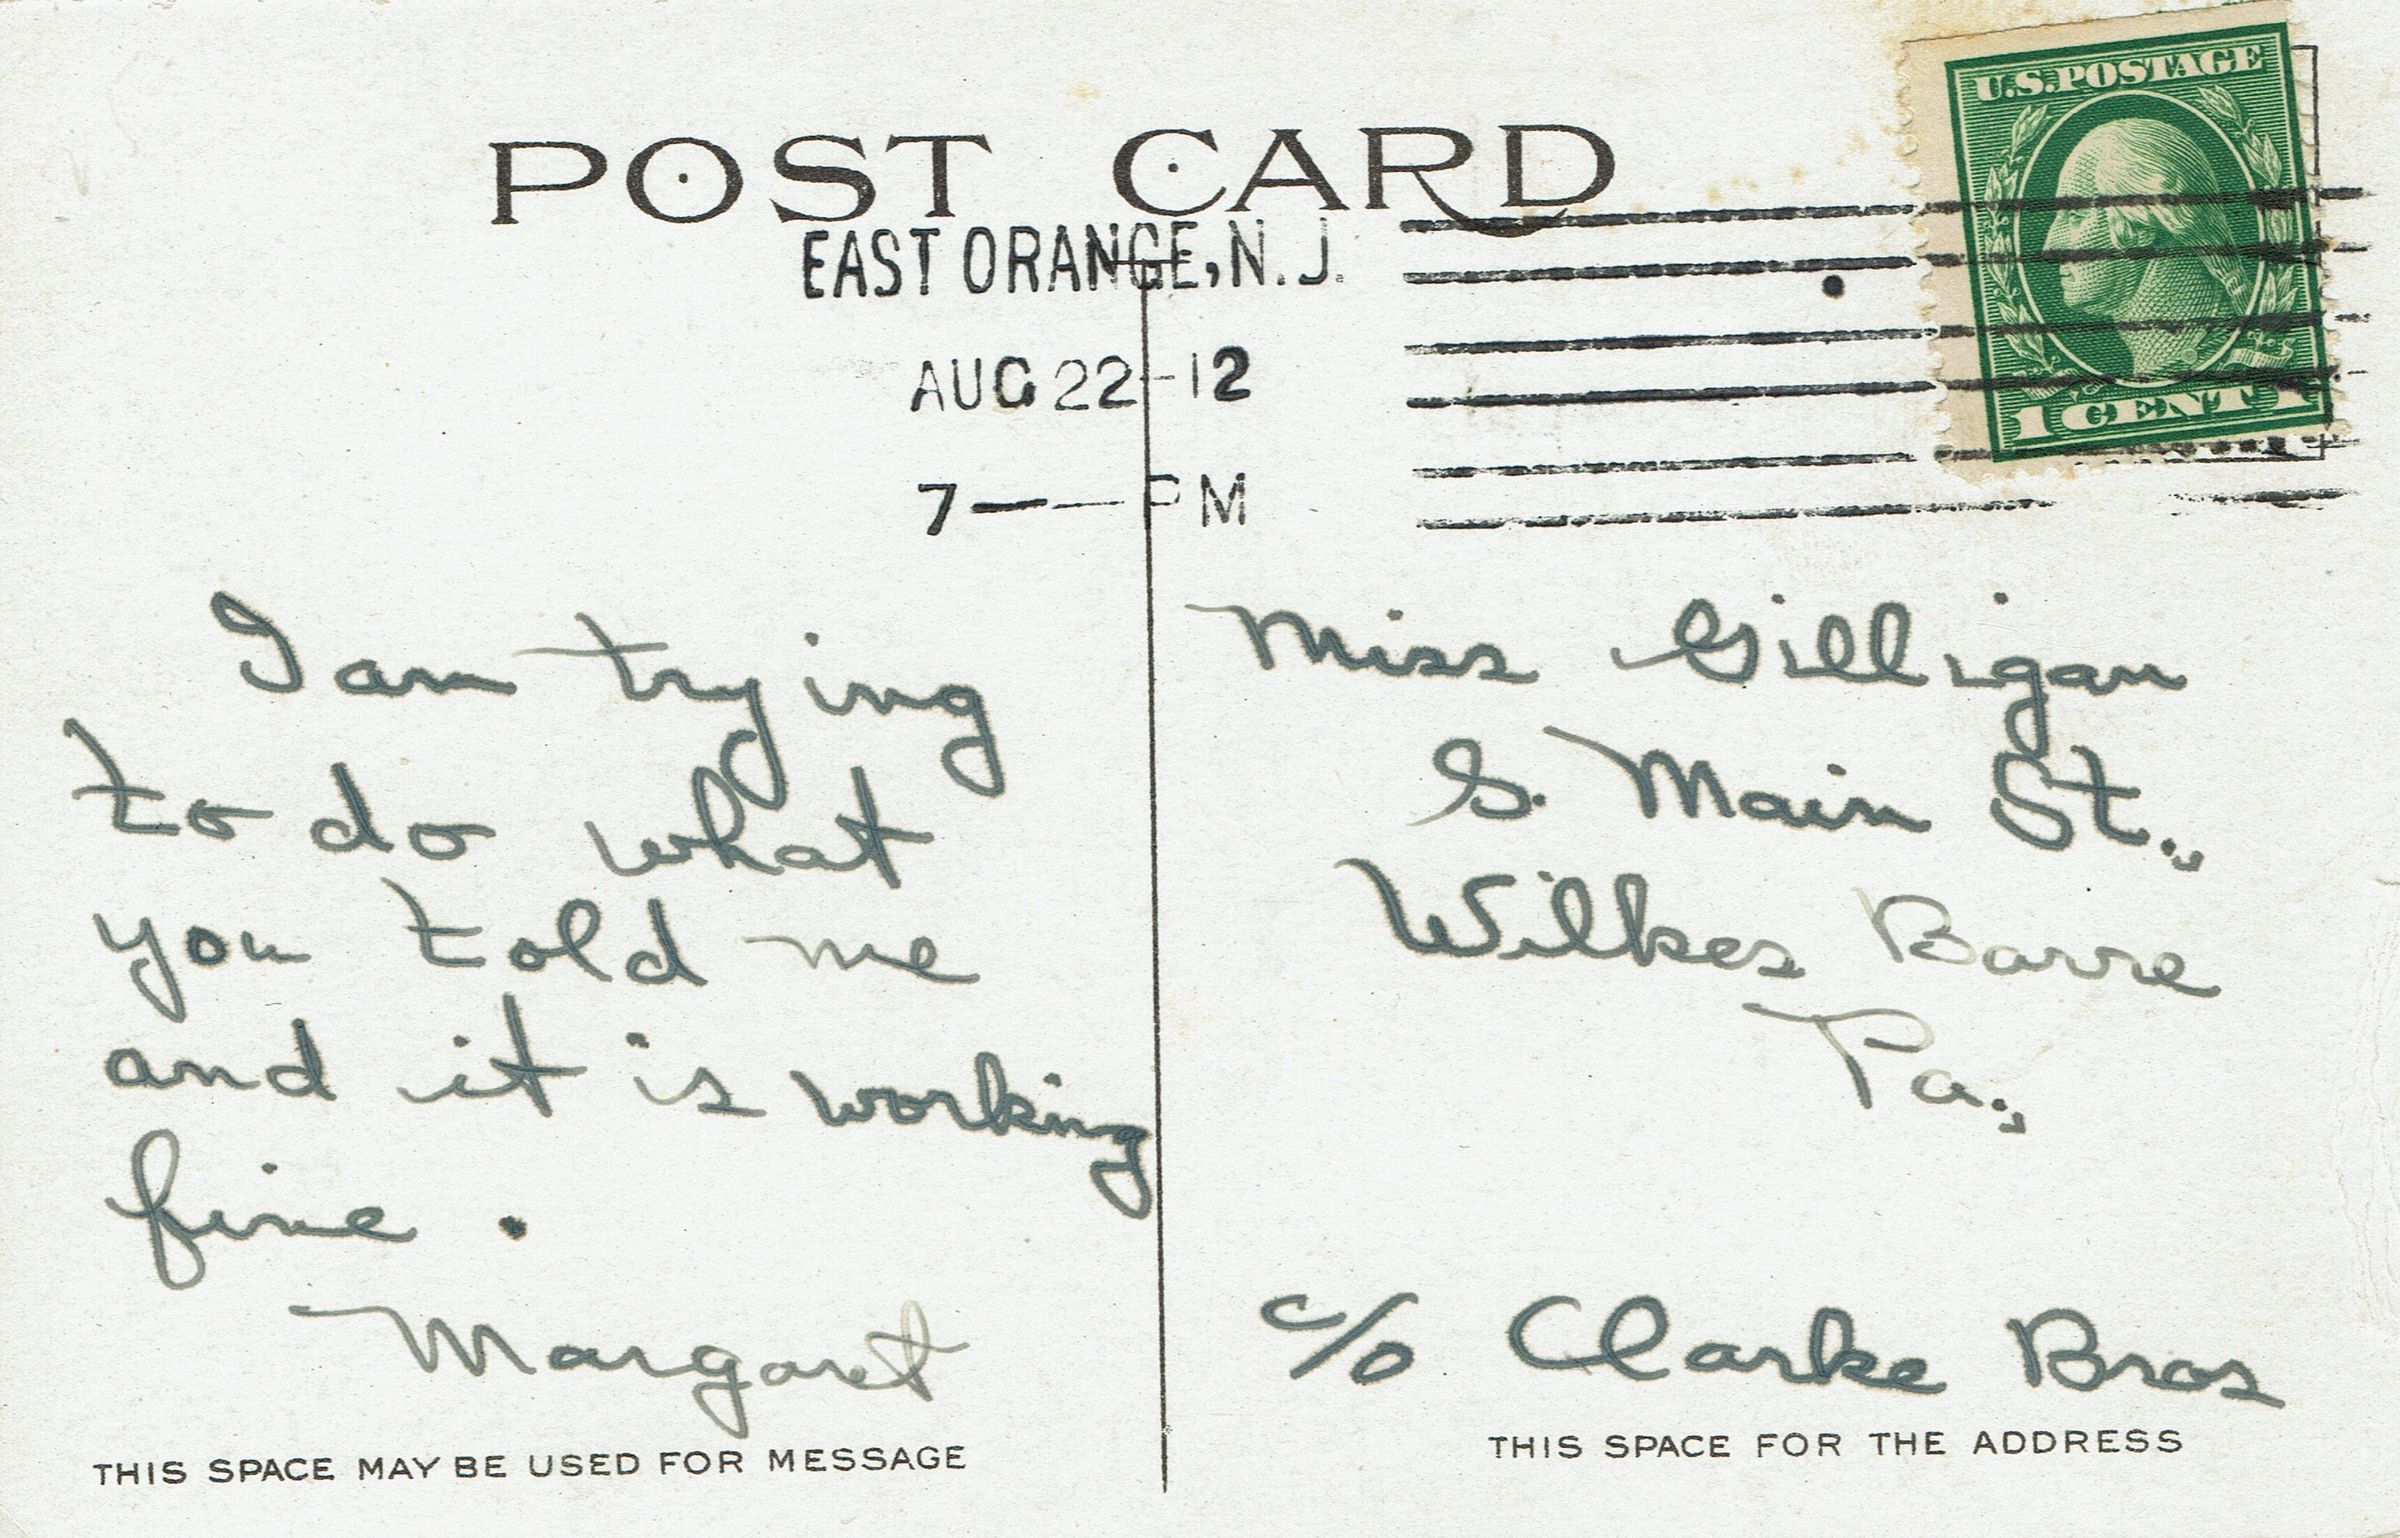 POST CARD
U.S. POSTAGE
1 CENT 1
EAST ORANGE, N.J.
AUG 22-12
7 — PM
I am trying
to do what
you told me
and it is working
fine.
Margaret
THIS SPACE MAY BE USED FOR MESSAGE
Miss Gilligan
S. Main St.,
Wilkes Barre
Pa.,
c/o Clarke Bros
THIS SPACE FOR THE ADDRESS